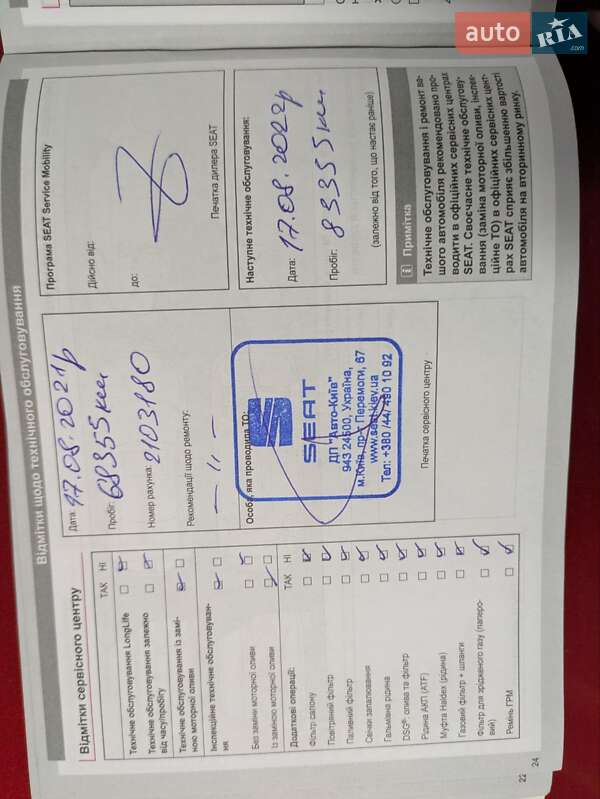 auto RIA.com
Відмітки щодо технічного обслуговування
Відмітки сервісного центру
ТАК НІ
Технічне обслуговування LongLife
Технічне обслуговування залежно
від часу/пробігу
Технічне обслуговування із замі-
ною моторної оливи
Інспекційне технічне обслуговуван-
ня
Без заміни моторної оливи
Із заміною моторної оливи
Додаткові операції:
ТАК НІ
Фільтр салону
Повітряний фільтр
Паливний фільтр
Свічки запалювання
Гальмівна рідина
DSG®: олива та фільтр
Рідина АКП (ATF)
Муфта Haldex (рідина)
Газовий фільтр + шланги
Фільтр для зрідженого газу (паперо-
вий)
Ремінь ГРМ
Дата: 17.08.2021р
Пробіг: 68355км
Номер рахунка: 2103180
Рекомендації щодо ремонту:
— // —
Особа, яка проводила ТО:
SEAT
ДП "Авто-Київ"
943 24500, Україна,
м.Київ, пр-т Перемоги, 67
www.seat.kiev.ua
Тел: +380 /44/ 490 10 92
Печатка сервісного центру
Програма SEAT Service Mobility
Дійсно від:
до:
Печатка дилера SEAT
Наступне технічне обслуговування:
Дата: 17.08.2022р
Пробіг: 83355км
(залежно від того, що настає раніше)
Примітка
Технічне обслуговування і ремонт ва-
шого автомобіля рекомендовано про-
водити в офіційних сервісних центрах
SEAT. Своєчасне технічне обслугову-
вання (заміна моторної оливи, інспек-
ційне ТО) в офіційних сервісних цент-
рах SEAT сприяє збільшенню вартості
автомобіля на вторинному ринку.
22
24